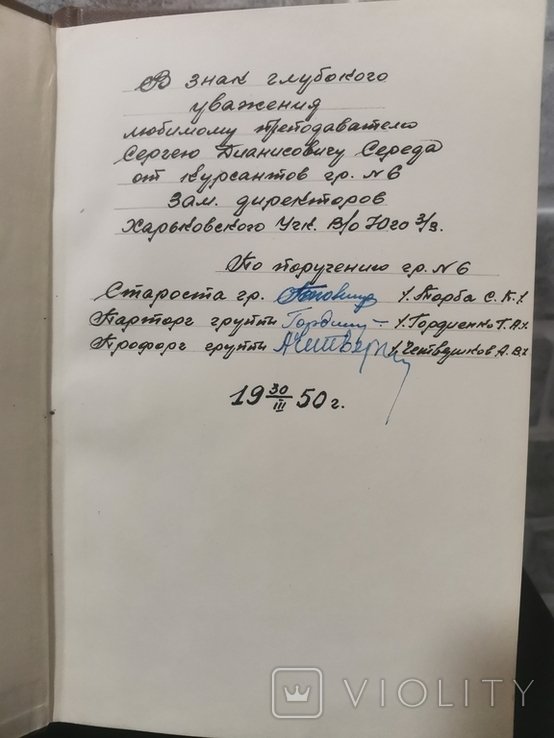 В знак глубокого
уважения
любимому преподавателю
Сергею Дианисовичу Середа
от курсантов гр. №6
зам. директоров
Харьковского Учк. В/о Юго З/з.
По поручению гр. №6
Староста гр. /Торба С. К./
Парторг группы /Гордиенко Г. А/
Профорг группы /Четвяшков А. В/
19 30/III 50 г.
VIOLITY